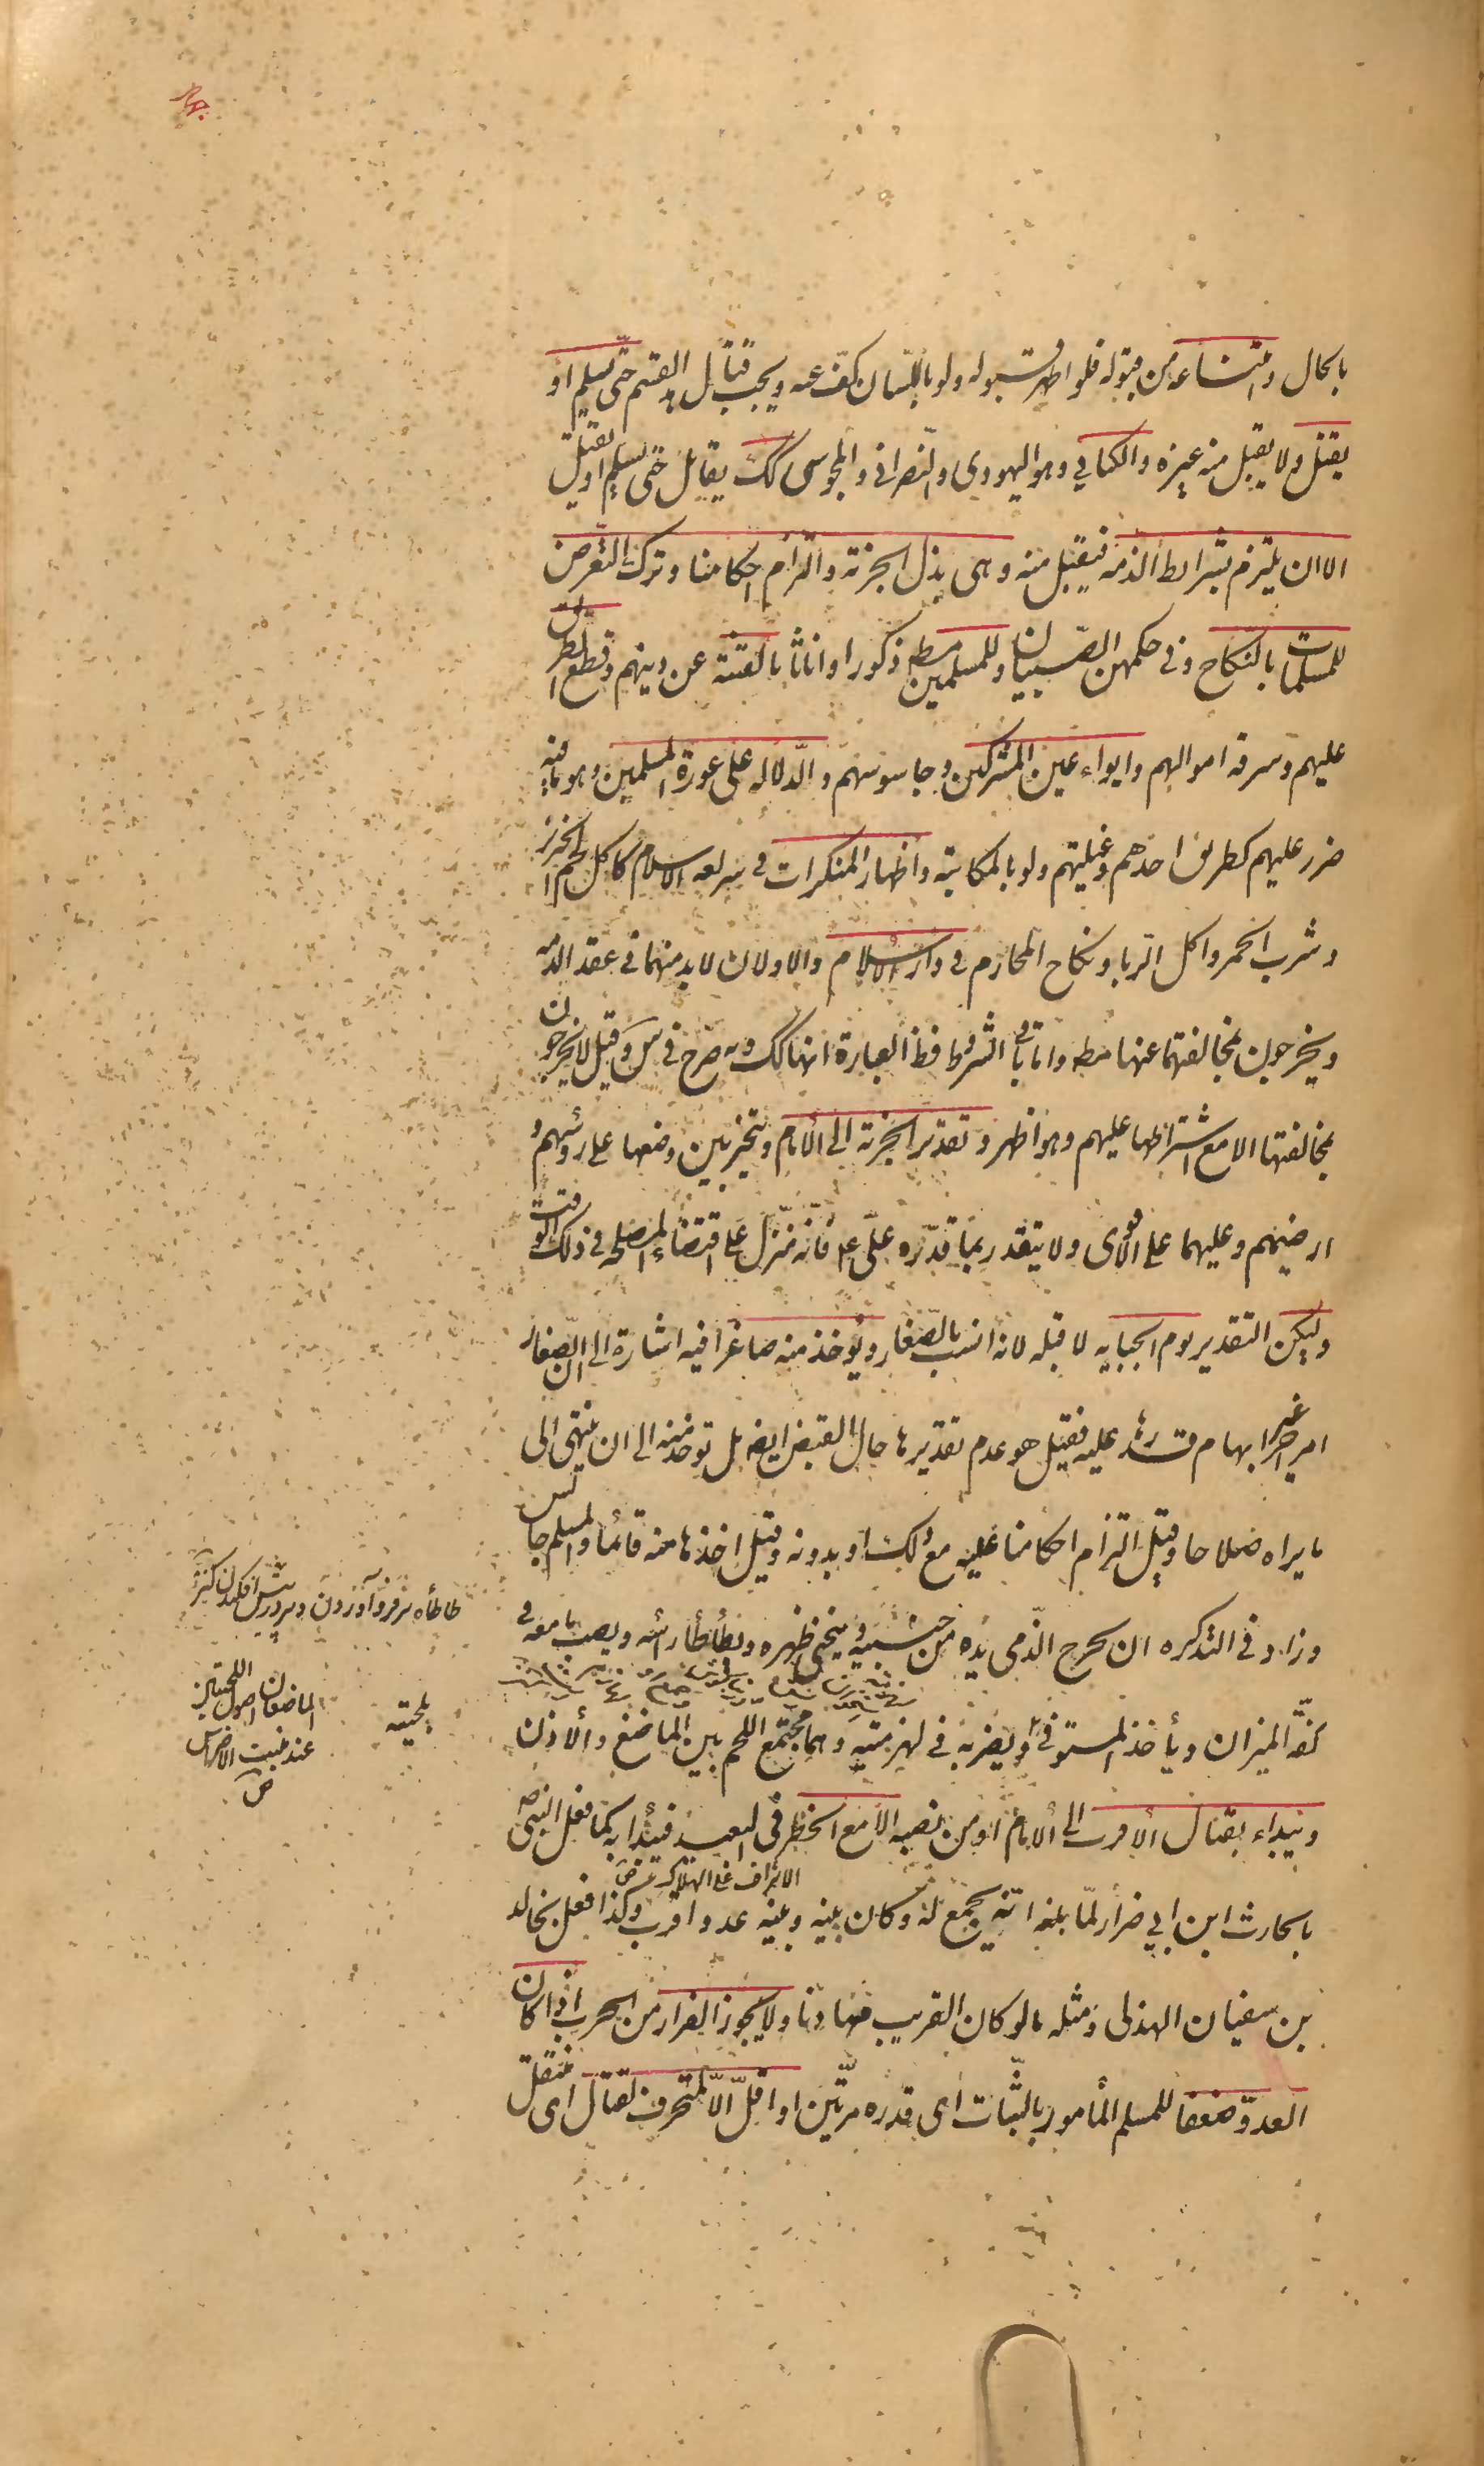 بالحال وامتناعه من قبوله فلو اظهر قبوله ولو باللسان كف عنه ويجب قتال هذا القسم حتّى يسلم او
يقتل ولا يقبل منه غيره والكتابي وهو اليهودى والنصرانى والمجوسى كك يقاتل حتى يسلم او يقتل
الا ان يلتزم بشرايط الذمه فيقبل منه وهى بذل الجزية والتزام احكامنا وترك التعرض
للمسلمات بالنكاح وفى حكمهن الصبيان وللمسلمين مطم ذكورا واناثا بالفتنة عن دينهم وقطع الطريق
عليهم وسرقه اموالهم وايواء عين المشركين وجاسوسهم والدّلاله على عورة المسلمين وهو ما فيه
ضرر عليهم كطريق اخذهم وغيلتهم ولو بالمكاتبة واظهار المنكرات فى شريعه الاسلام كاكل لحم الخنزير
وشرب الخمر واكل الربا ونكاح المحارم فى دار الاسلام والاولان لا بد منهما فى عقد الذمه
ويخرجون بمخالفتهما عنها مطم واما باقى الشروط فظ العبارة انها كك وبه صرح فى س وقيل لا يخرجون
بمخالفتها الا مع اشتراطها عليهم وهو اظهر وتقدير الجزية الى الامام ويتخير بين وضعها على رؤسهم و
ارضيهم وعليهما على الاقوى ولا يتقدر بما قدّره علىّ ع فانّه منزّل على اقتضاء المصلحه فى ذلك الوقت
وليكن التقدير يوم الجبايه لا قبله لانه انسب بالصغار ويؤخذ منه صاغرا فيه اشارة الى ان الصغار
امر اخر غير ابهام قدرها عليه فقيل هو عدم تقديرها حال القبض ايضا بل تؤخذ منه الى ان ينتهى الى
ما يراه صلاحا وقيل التزام احكامنا عليه مع ذلك او بدونه وقيل اخذها منه قائما والمسلم جالس
وزاد فى التذكره ان يخرج الذّمى يده من جيبه ويحنى ظهره ويطأطأ رأسه ويصب ما معه فى
كفّة الميزان ويأخذ المستوفى بلحيته ويضربه فى لهزمتيه وهما مجتمع اللحم بين الماضغ والاذن
ويبداء بقتال الاقرب الى الامام او من نصبه الا مع الخطر فى البعيد فيبدأ به كما فعل النبى ص
الاشراف على الهلاك
بالحارث ابن ابي ضرار لمّا بلغه انّه يجمع له وكان بينه وبينه عدو اقرب وكذا فعل بخالد
بن سفيان الهذلى ومثله ما لو كان القريب مهادنا ولا يجوز الفرار من الحرب اذا كان
العدوّ ضعفا للمسلم المأمور بالثّبات اى قدره مرّتين او اقلّ الّا لمتحرف لقتال اى منتقل
طاطأه سر فرو آوردن و سر در پيش افكندن كنز
بلحيته
الماضغان اصول اللحيتين
عند منبت الاضراس
ص